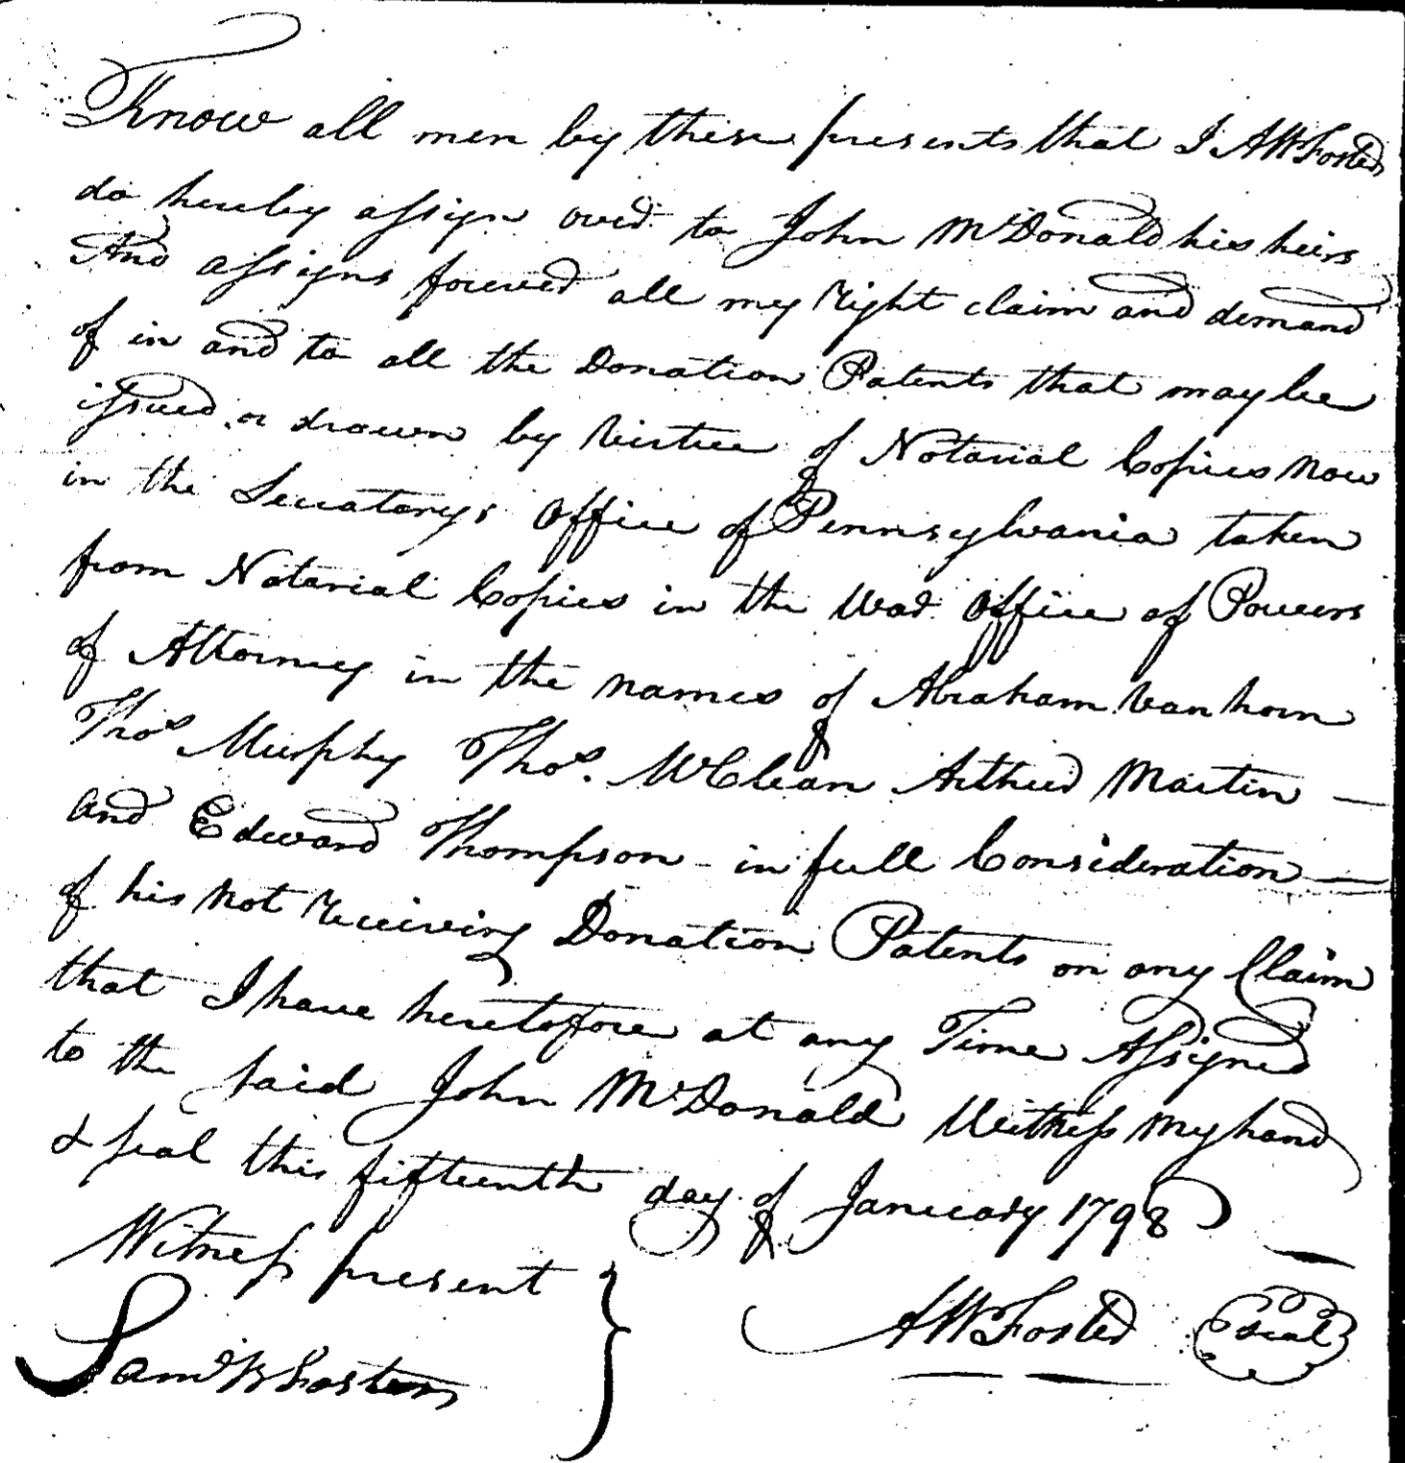 Know all men by these presents that I AW Foster
do hereby assign over to John McDonald his heirs
And assigns forever all my right claim and demand
of in and to all the Donation Patents that may be
issued or drawn by Virtue of Notarial Copies now
in the Secratarys Office of Pennsylvania taken
from Notarial Copies in the War Office of Powers
of Attorney in the names of Abraham Vanhorn
Thos Murphy Thos. McClean Arthur Martin —
and Edward Thompson – in full Consideration —
of his not receiving Donation Patents on any Claim
that I have heretofore at any Time Assigned
to the said John McDonald Witness my hand
& seal this fifteenth day of January 1798
Witness present
AW Foster Seal
Saml B Foster